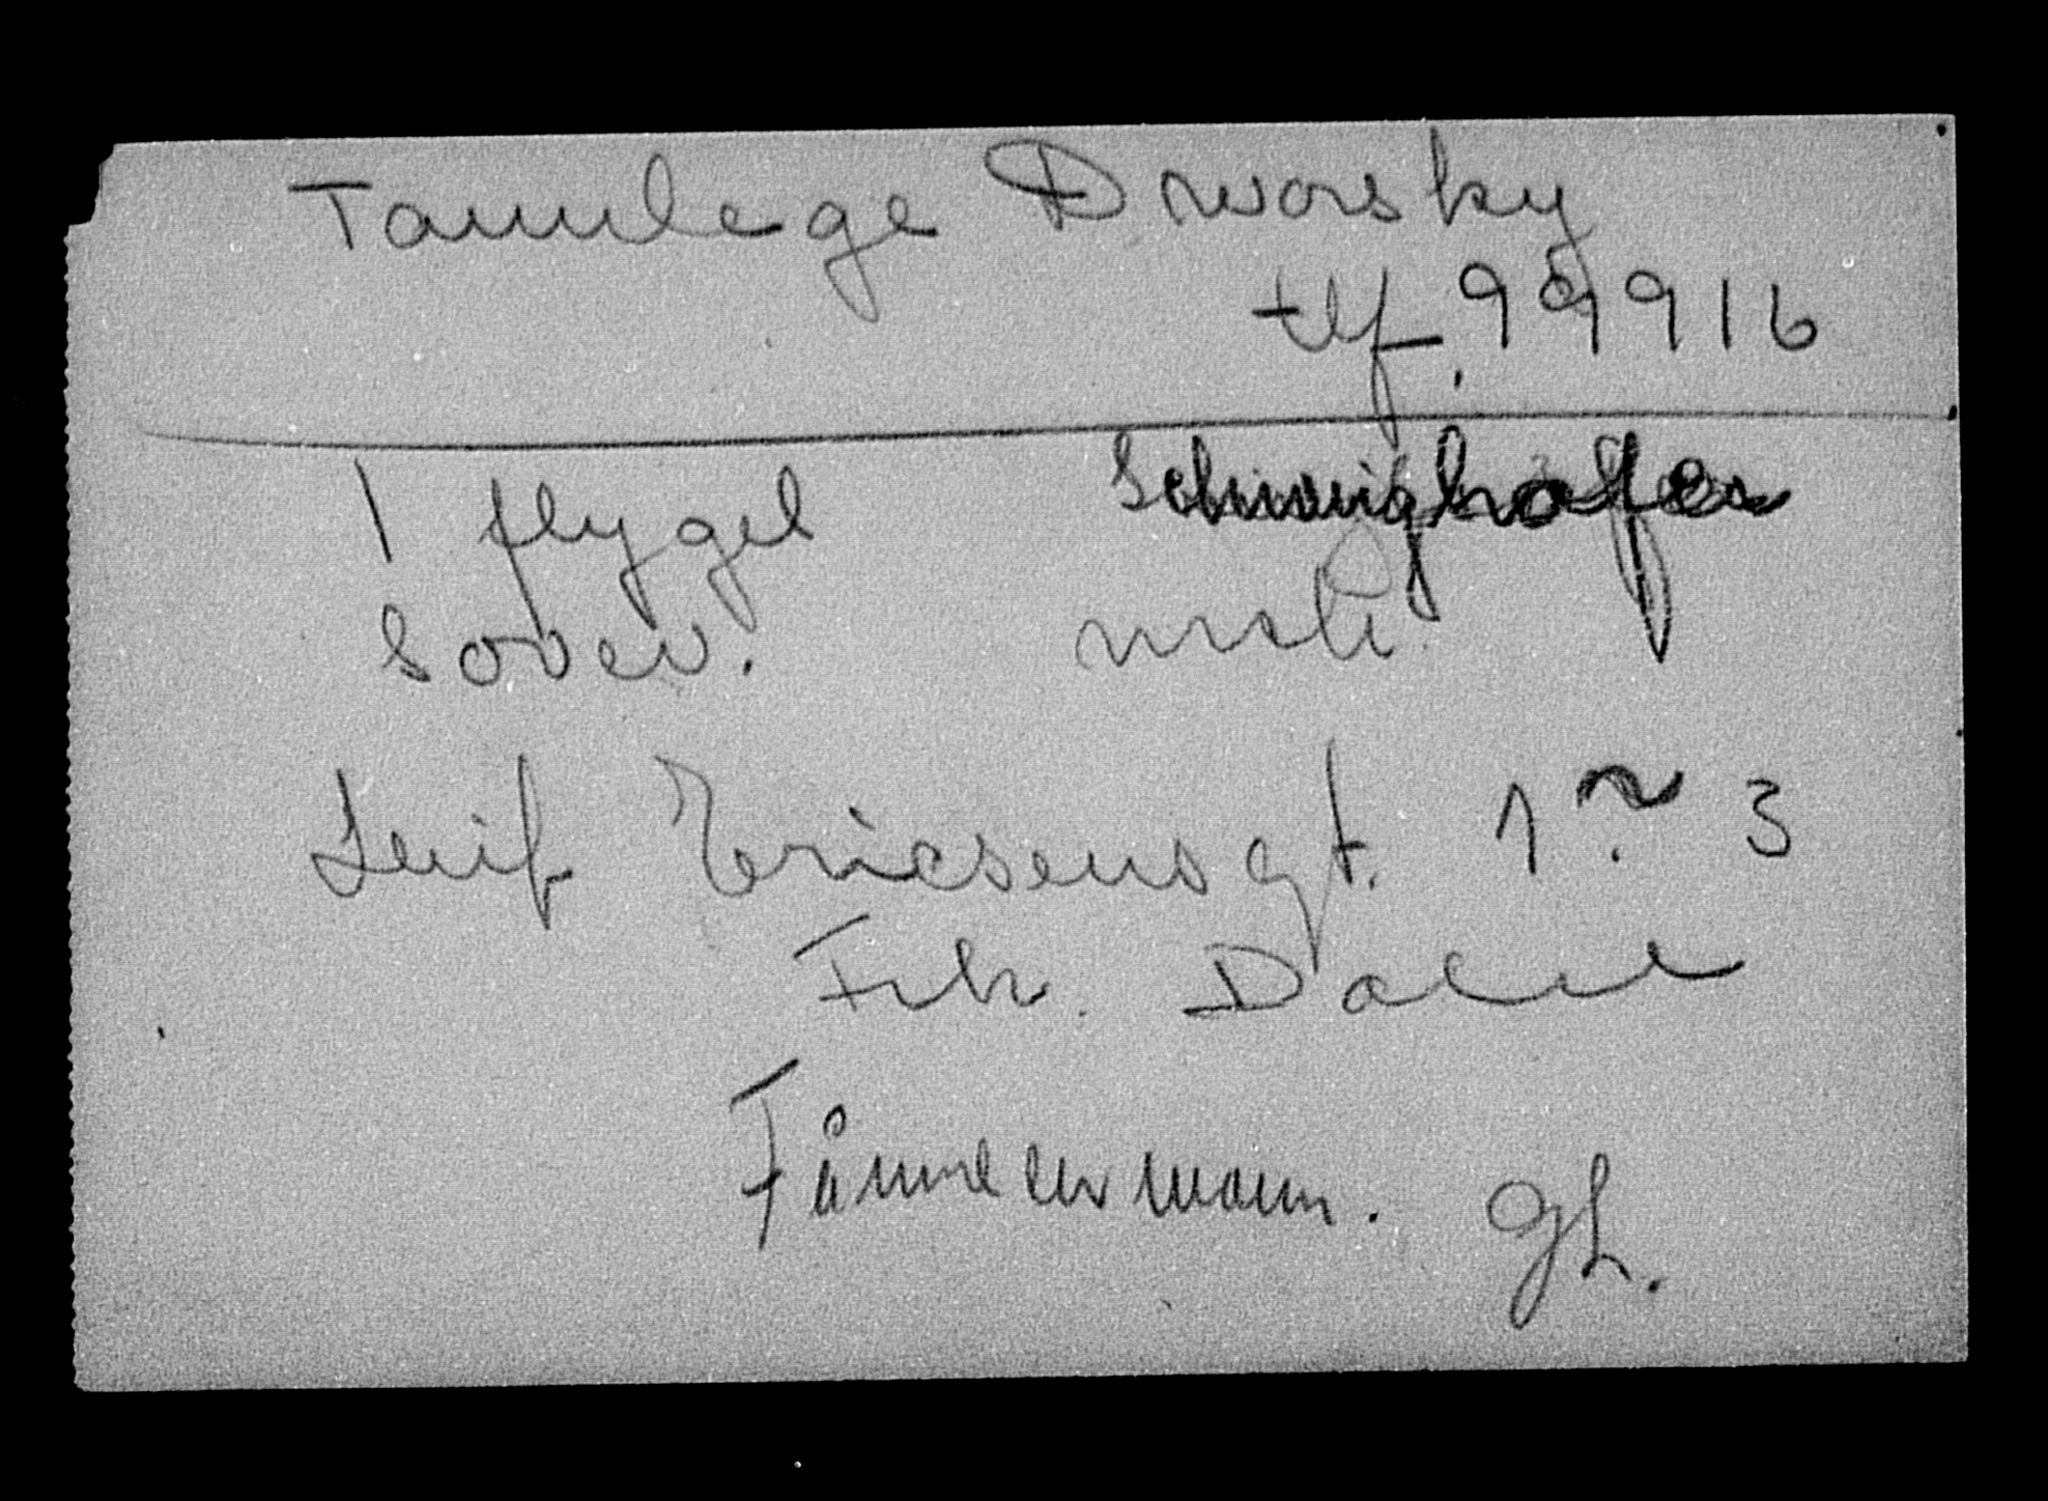 Tannlege Dworsky
tlf. 99916
1 flygel Schweighofer
Sovev. msti
Leif Ericsensgt. 1 3
Frk. Dahl
Tånnevmann. GL.